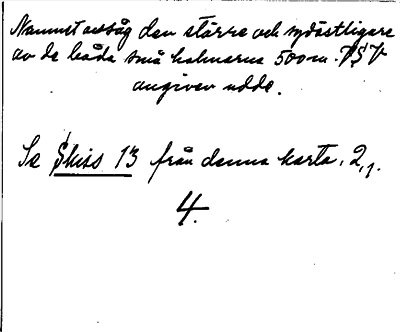 Namnet avsåg den större och sydöstligare
av de båda små holmarna 500 m. VSV
angiven udde.
Se Skiss 13 från denna karta. 2,1.
4.